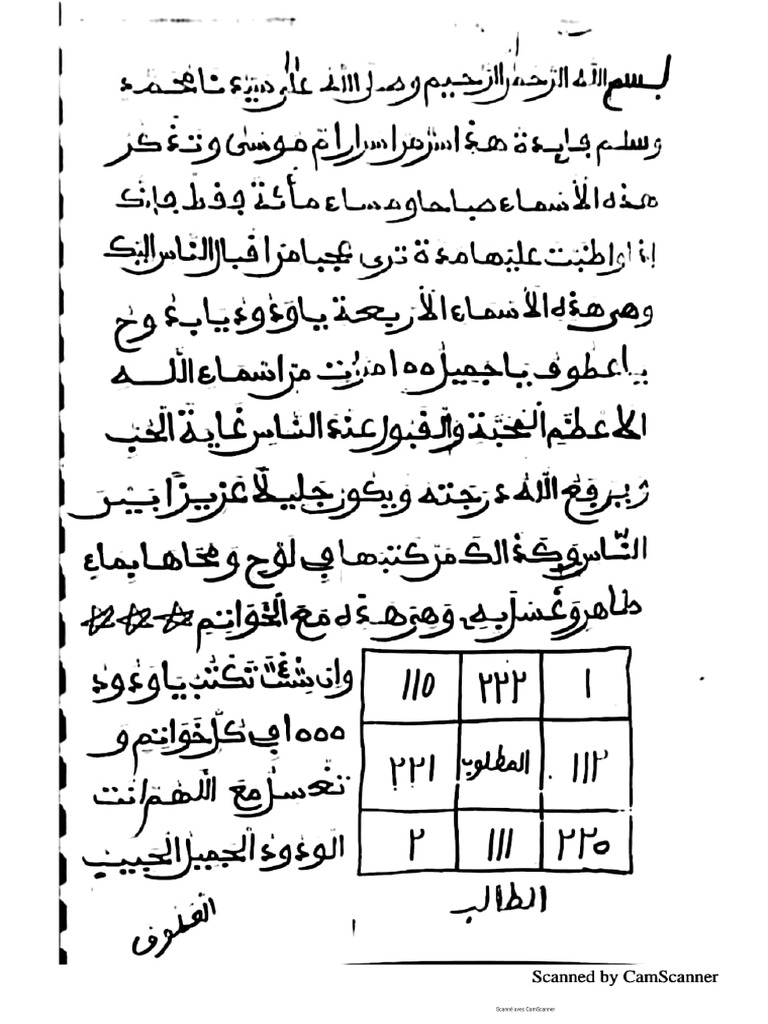 بسم الله الرحمن الرحيم وصلى الله على سيدنا محمد
وسلم فايدة هذا سر من اسرار ام موسى وتذكر
هذه الأسماء صباحا ومساء مائة فقط فإنك
إذا واظبت عليها مدة ترى عجبا من اقبال الناس اليك
وهي هذه الأسماء الأربعة يا ودود يا بدوح
يا عطوف يا جميل ١٠٠ مرات من اسماء الله
الاعظم المحبة والقبول عند الناس غاية الحب
ويرفع الله درجته ويكون جليلا عزيزا بين
الناس وكذالك من كتبها في لوح ومحاها بماء
طاهر وغسل به وهي هذه مع الخواتم
وإن شئت تكتب يا ودود
١٠٠٠ في كل خواتم و
تغسل مع اللهم انت
الودود الجميل الحبيب
العطوف
١ ٢٢٢ ١١٥
١١٢ المطلوب ٢٢١
٢٢٠ ١١١ ٢
الطالب
Scanned by CamScanner
Scanné avec CamScanner